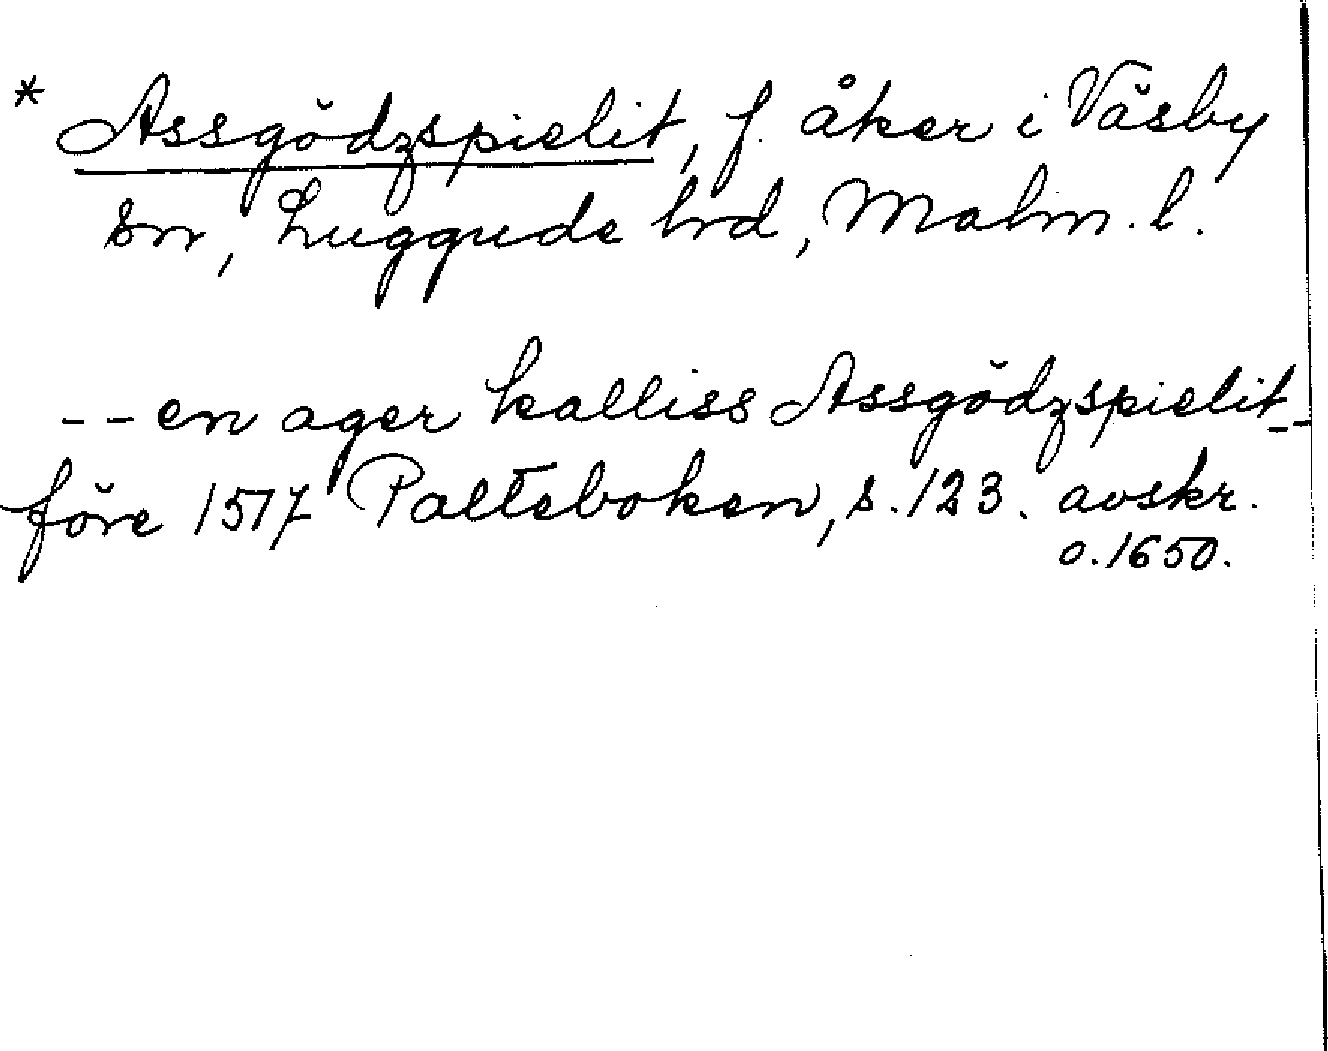 * Assgödzspielit, f. åker i Väsby
sn, Luggude hd, Malm. l.
-- en ager kalliss Assgödzspielit --
före 1517 Palteboken, s. 123. avskr.
o. 1650.